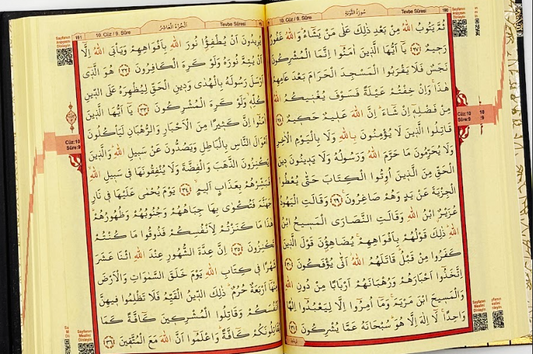 190
Tevbe Sûresi
سُورَةُ التَّوْبَةِ
10. Cüz / 9. Sûre
ثُمَّ يَتُوبُ اللهُ مِنْ بَعْدِ ذٰلِكَ عَلٰى مَنْ يَشَاءُ وَاللهُ غَفُورٌ
رَحِيمٌ ﴿٢٧﴾ يَا اَيُّهَا الَّذِينَ اٰمَنُوا اِنَّمَا الْمُشْرِكُونَ
نَجَسٌ فَلَا يَقْرَبُوا الْمَسْجِدَ الْحَرَامَ بَعْدَ عَامِهِمْ
هٰذَا وَاِنْ خِفْتُمْ عَيْلَةً فَسَوْفَ يُغْنِيكُمُ اللهُ
مِنْ فَضْلِهِ اِنْ شَاءَ اِنَّ اللهَ عَلِيمٌ حَكِيمٌ ﴿٢٨﴾
قَاتِلُوا الَّذِينَ لَا يُؤْمِنُونَ بِاللهِ وَلَا بِالْيَوْمِ الْاٰخِرِ
وَلَا يُحَرِّمُونَ مَا حَرَّمَ اللهُ وَرَسُولُهُ وَلَا يَدِينُونَ دِينَ
الْحَقِّ مِنَ الَّذِينَ اُوتُوا الْكِتَابَ حَتّٰى يُعْطُوا
الْجِزْيَةَ عَنْ يَدٍ وَهُمْ صَاغِرُونَ ﴿٢٩﴾ وَقَالَتِ الْيَهُودُ
عُزَيْرٌ ابْنُ اللهِ وَقَالَتِ النَّصَارَى الْمَسِيحُ ابْنُ
اللهِ ذٰلِكَ قَوْلُهُمْ بِاَفْوَاهِهِمْ يُضَاهِؤُنَ قَوْلَ الَّذِينَ
كَفَرُوا مِنْ قَبْلُ قَاتَلَهُمُ اللهُ اَنّٰى يُؤْفَكُونَ ﴿٣٠﴾
اِتَّخَذُوا اَحْبَارَهُمْ وَرُهْبَانَهُمْ اَرْبَابًا مِنْ دُونِ اللهِ
وَالْمَسِيحَ ابْنَ مَرْيَمَ وَمَا اُمِرُوا اِلَّا لِيَعْبُدُوا اِلٰهًا
وَاحِدًا لَا اِلٰهَ اِلَّا هُوَ سُبْحَانَهُ عَمَّا يُشْرِكُونَ ﴿٣١﴾
Tevbe Sûresi
10. Cüz / 9. Sûre
191
يُرِيدُونَ اَنْ يُطْفِؤُا نُورَ اللهِ بِاَفْوَاهِهِمْ وَيَأْبَى اللهُ اِلَّا
اَنْ يُتِمَّ نُورَهُ وَلَوْ كَرِهَ الْكَافِرُونَ ﴿٣٢﴾ هُوَ الَّذِي
اَرْسَلَ رَسُولَهُ بِالْهُدٰى وَدِينِ الْحَقِّ لِيُظْهِرَهُ عَلَى الدِّينِ
كُلِّهِ وَلَوْ كَرِهَ الْمُشْرِكُونَ ﴿٣٣﴾ يَا اَيُّهَا الَّذِينَ
اٰمَنُوا اِنَّ كَثِيرًا مِنَ الْاَحْبَارِ وَالرُّهْبَانِ لَيَأْكُلُونَ
اَمْوَالَ النَّاسِ بِالْبَاطِلِ وَيَصُدُّونَ عَنْ سَبِيلِ اللهِ وَالَّذِينَ
يَكْنِزُونَ الذَّهَبَ وَالْفِضَّةَ وَلَا يُنْفِقُونَهَا فِي سَبِيلِ اللهِ
فَبَشِّرْهُمْ بِعَذَابٍ اَلِيمٍ ﴿٣٤﴾ يَوْمَ يُحْمٰى عَلَيْهَا فِي نَارِ
جَهَنَّمَ فَتُكْوٰى بِهَا جِبَاهُهُمْ وَجُنُوبُهُمْ وَظُهُورُهُمْ
هٰذَا مَا كَنَزْتُمْ لِاَنْفُسِكُمْ فَذُوقُوا مَا كُنْتُمْ
تَكْنِزُونَ ﴿٣٥﴾ اِنَّ عِدَّةَ الشُّهُورِ عِنْدَ اللهِ اثْنَا عَشَرَ
شَهْرًا فِي كِتَابِ اللهِ يَوْمَ خَلَقَ السَّمٰوَاتِ وَالْاَرْضَ
مِنْهَا اَرْبَعَةٌ حُرُمٌ ذٰلِكَ الدِّينُ الْقَيِّمُ فَلَا تَظْلِمُوا فِيهِنَّ
اَنْفُسَكُمْ وَقَاتِلُوا الْمُشْرِكِينَ كَافَّةً كَمَا
يُقَاتِلُونَكُمْ كَافَّةً وَاعْلَمُوا اَنَّ اللهَ مَعَ الْمُتَّقِينَ ﴿٣٦﴾
Cüz:10
Sûre:9